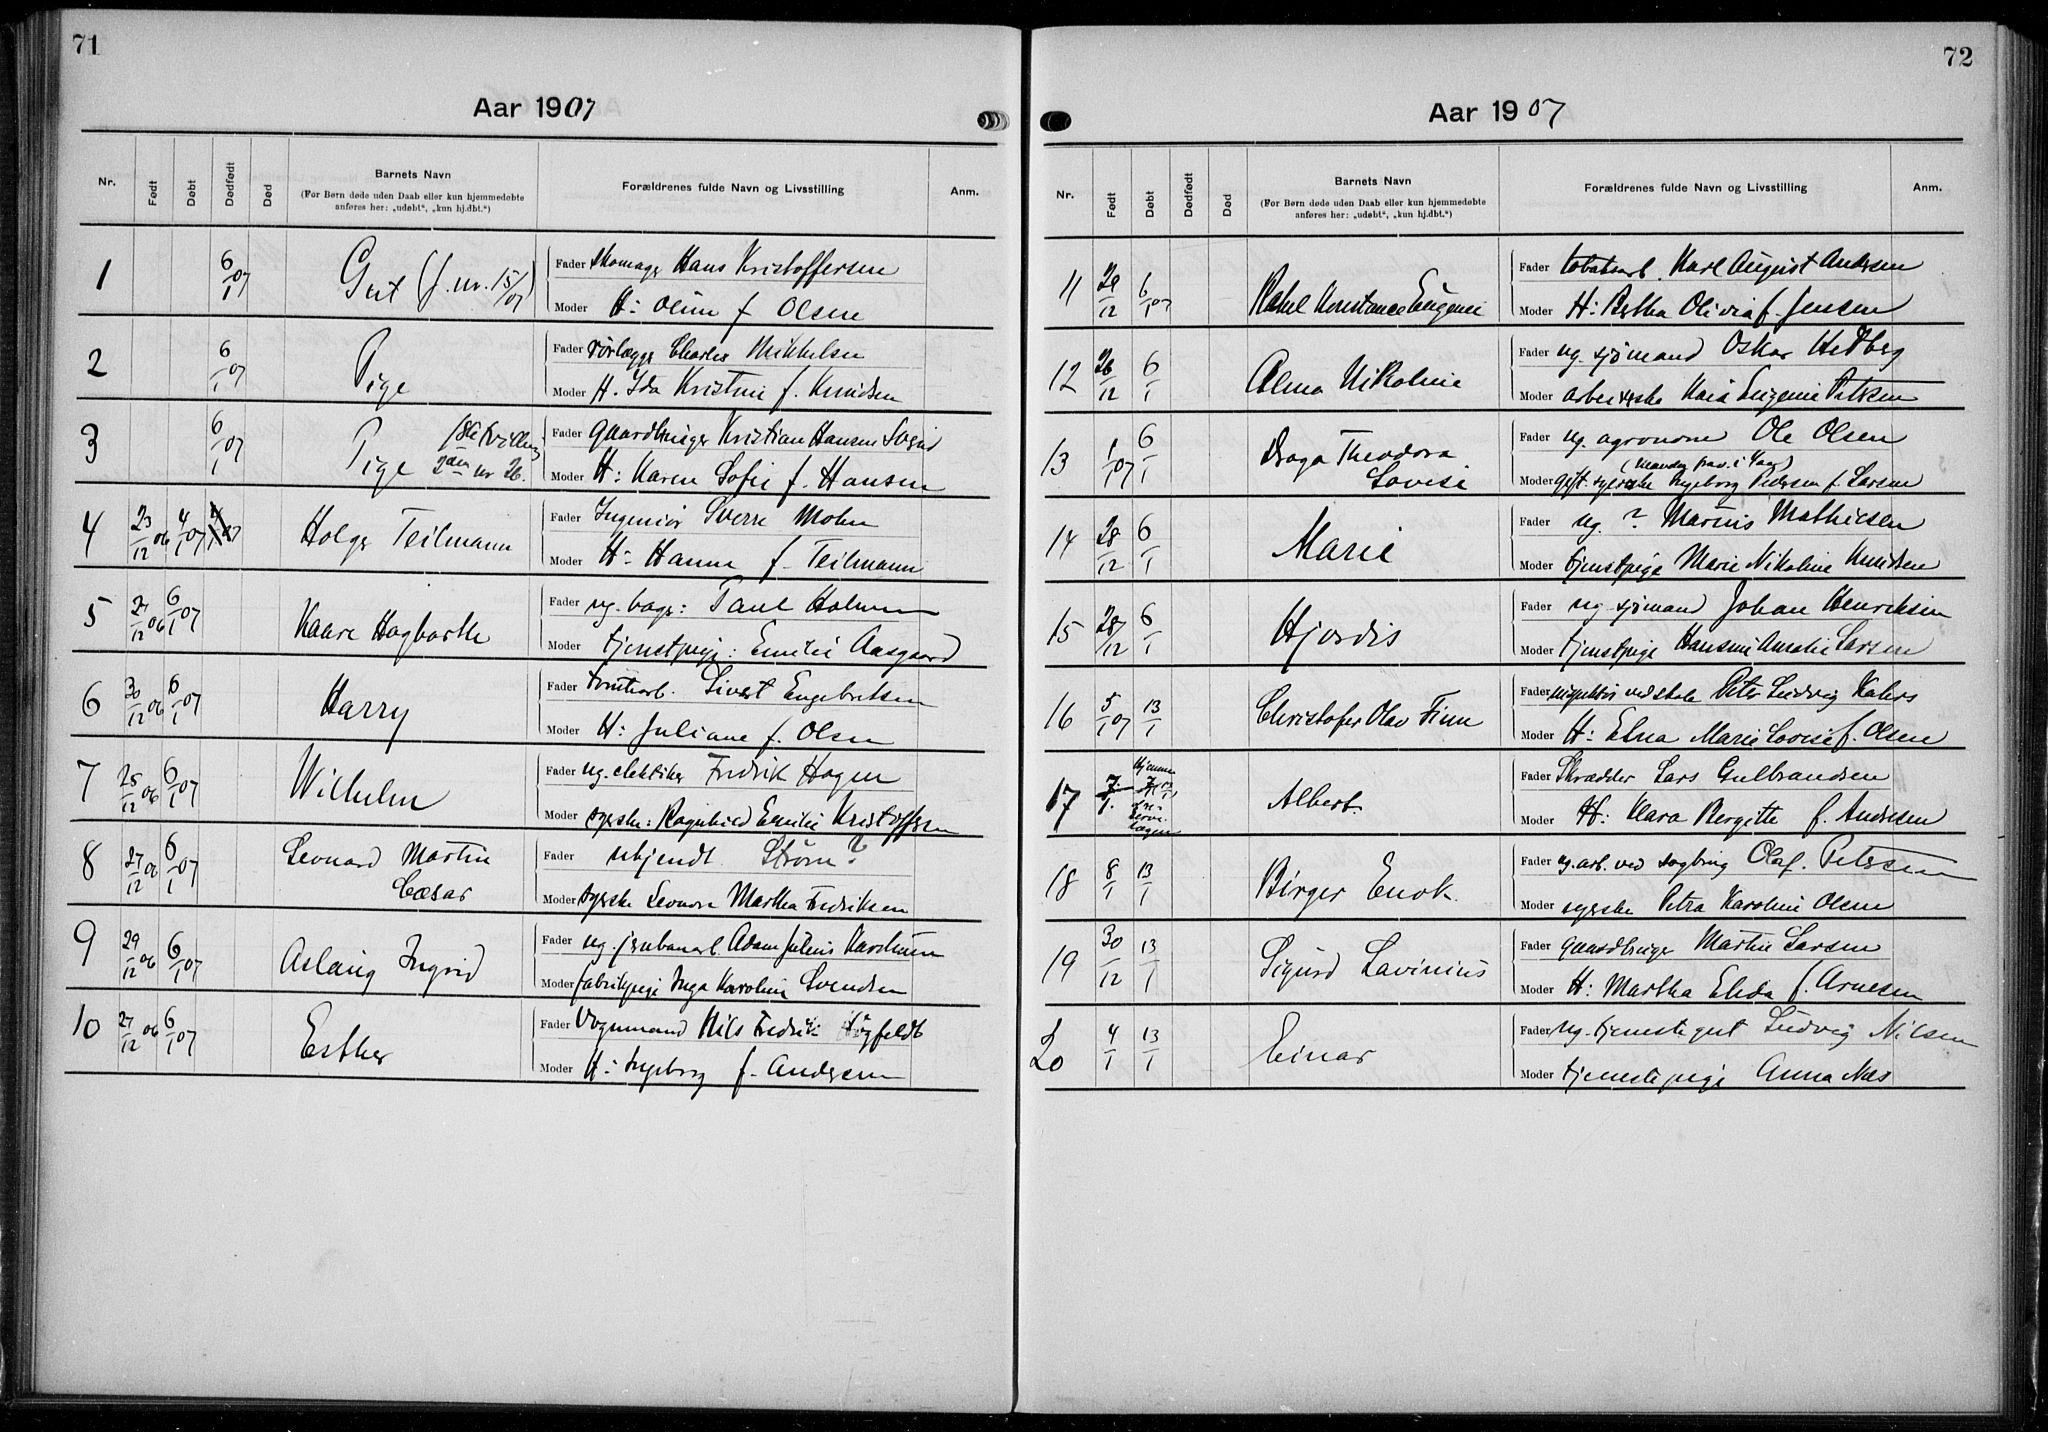 71
Aar 1907
Nr. Født Døbt Dødfødt Død Barnets Navn Forældrenes fulde Navn og Livsstilling Anm.
(For Børn døde uden Daab eller kun hjemmedøbte
anføres her: „udøbt“, „kun hj.dbt.“)
1 6/1 07 Gut (f. nr. 15/07) Fader Skomager Hans Kristoffersen
Moder H: Oline f Olsen
2 6/1 07 Pige Fader rørlægger Charles Mikkelsen
Moder H. Ida Kristine f. Knudsen
3 6/1 07 Pige 2den nr 26. Fader Gaardbruger Kristian Hansen
Moder H: Karen Sofie f. Hansen
4 23/12 06 4/1 07 Holger Teilmann Fader Ingeniør Sverre Mohn
Moder H: Hanna f. Teilmann
5 21/12 06 6/1 07 Kaare Hagbarth Fader ug. bager: Paul Holmen
Moder tjenstpige: Emilie Aasgaard
6 30/12 06 6/1 07 Harry Fader tomtearb. Sivert Engebretsen
Moder H: Juliane f. Olsen
7 25/12 06 6/1 07 Wilhelm Fader ug. elektriker Fredrik Hagen
Moder syerske: Ragnhild Emilie Kristoffersen
8 27/12 06 6/1 07 Leonard Martin Cæsar Fader ubekjendt Strøm?
Moder syerske Leonora Martha Fredriksen
9 29/12 06 6/1 07 Aslaug Ingvid Fader ug. jernbanearb. Adam Julius
Moder fabrikpige Inga Karoline Svendsen
10 27/12 06 6/1 07 Esther Fader Vognmand Nils Fredrik Høgfeldt
Moder H: Ingeborg f. Andersen
72
Aar 1907
Nr. Født Døbt Dødfødt Død Barnets Navn Forældrenes fulde Navn og Livsstilling Anm.
(For Børn døde uden Daab eller kun hjemmedøbte
anføres her: „udøbt“, „kun hj.dbt.“)
11 28/12 6/1 07 Rakel Konstance Eugenie Fader tobaksarb. Karl August Andersen
Moder H: Bertha Olivia f. Jensen
12 26/12 6/1 Alma Nikoline Fader ug. sjømand Oskar Hedberg
Moder arbeiderske Kaia Eugenie Petersen
13 1/1 07 6/1 Draga Theodora Lovise Fader ug. agronom Ole Olsen
Moder gift. syerske Ingeborg Pedersen f. Larsen
14 28/12 6/1 Marie Fader ug. ? Marius Mathiesen
Moder tjenstpige Marie Nikoline Knudsen
15 28/12 6/1 Hjørdis Fader ug. sjømand Johan Henriksen
Moder tjenstpige Hansine Amalie Larsen
16 5/1 07 13/1 Christofer Olav Finn Fader inspektør ved skole Peter Ludvig Kahrs
Moder H: Elna Marie Lovise f. Olsen
17 7/1. Hjemme Albert. Fader Skrædder Lars Gulbrandsen
Moder H: Klara Bergitte f. Andresen
18 8/1 13/1 Birger Enok. Fader ug. arb. ved sagbrug Olaf. Petersen
Moder syerske Petra Karoline Olsen
19 30/12 13/1 Sigurd Lavinius Fader gaardbruger Martin Larsen
Moder H: Martha Elida f. Arnesen
20 4/1 13/1 Einar Fader ug. tjenestegut Ludvig Nilsen
Moder tjenestepige Anna Næs